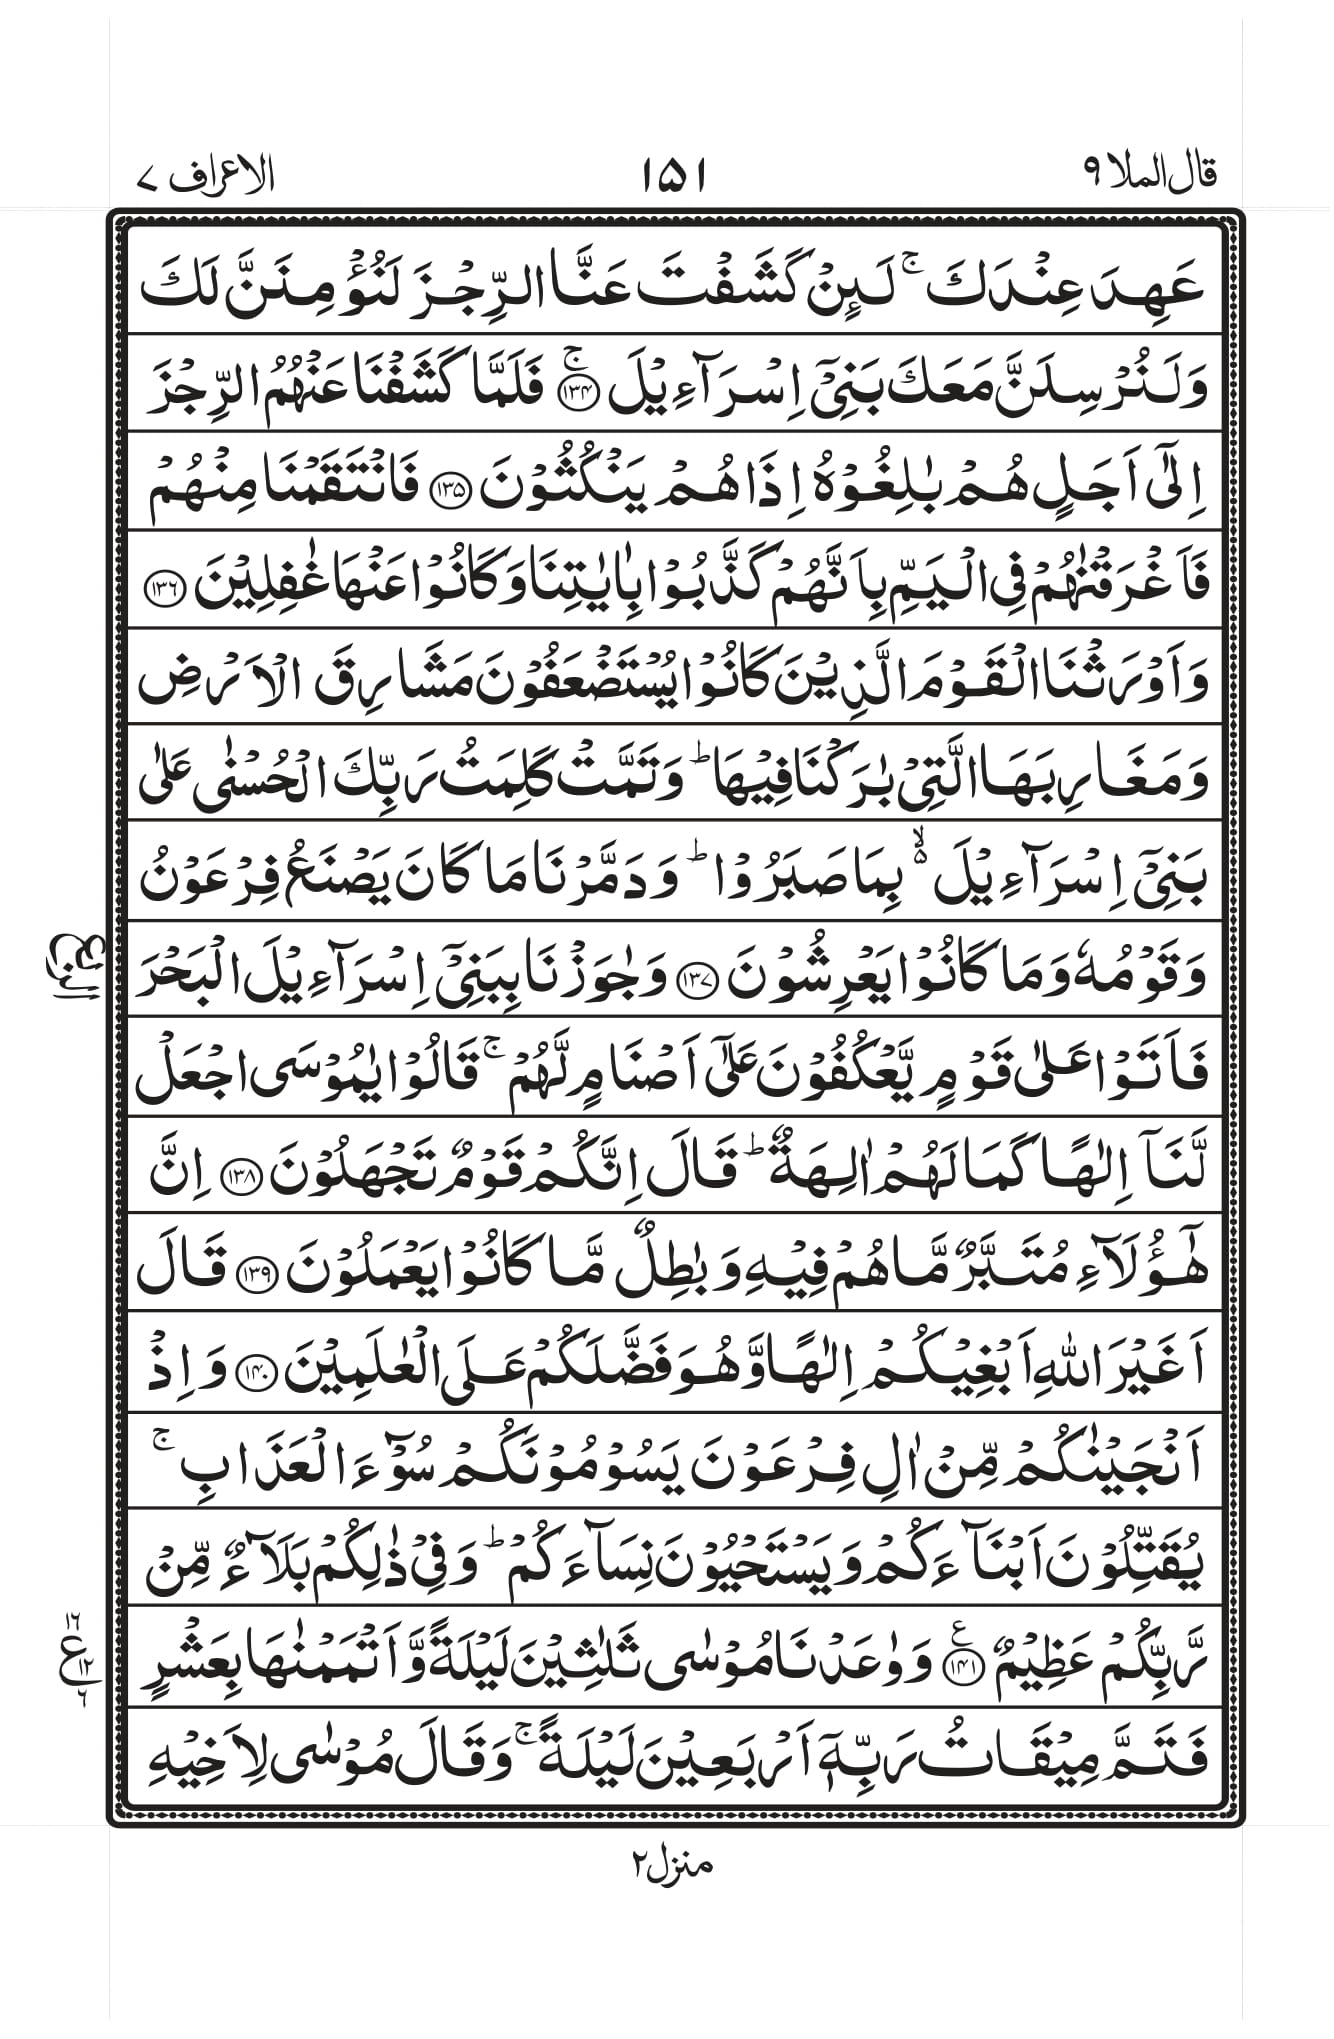 قال الملا ۹
۱۵۱
الاعراف ۷
عَهِدَ عِنْدَكَ ۚ لَىِٕنْ كَشَفْتَ عَنَّا الرِّجْزَ لَنُؤْمِنَنَّ لَكَ
وَلَنُرْسِلَنَّ مَعَكَ بَنِیْۤ اِسْرَآءِیْلَ ۚ ﴿۱۳۴﴾ فَلَمَّا كَشَفْنَا عَنْهُمُ الرِّجْزَ
اِلٰۤی اَجَلٍ هُمْ بٰلِغُوْهُ اِذَا هُمْ یَنْكُثُوْنَ ﴿۱۳۵﴾ فَانْتَقَمْنَا مِنْهُمْ
فَاَغْرَقْنٰهُمْ فِی الْیَمِّ بِاَنَّهُمْ كَذَّبُوْا بِاٰیٰتِنَا وَكَانُوْا عَنْهَا غٰفِلِیْنَ ﴿۱۳۶﴾
وَاَوْرَثْنَا الْقَوْمَ الَّذِیْنَ كَانُوْا یُسْتَضْعَفُوْنَ مَشَارِقَ الْاَرْضِ
وَمَغَارِبَهَا الَّتِیْ بٰرَكْنَا فِیْهَا ؕ وَتَمَّتْ كَلِمَتُ رَبِّكَ الْحُسْنٰی عَلٰی
بَنِیْۤ اِسْرَآءِیْلَ ۙ۬ بِمَا صَبَرُوْا ؕ وَدَمَّرْنَا مَا كَانَ یَصْنَعُ فِرْعَوْنُ
وَقَوْمُهٗ وَمَا كَانُوْا یَعْرِشُوْنَ ﴿۱۳۷﴾ وَجٰوَزْنَا بِبَنِیْۤ اِسْرَآءِیْلَ الْبَحْرَ
فَاَتَوْا عَلٰی قَوْمٍ یَّعْكُفُوْنَ عَلٰۤی اَصْنَامٍ لَّهُمْ ۚ قَالُوْا یٰمُوْسَی اجْعَلْ
لَّنَاۤ اِلٰهًا كَمَا لَهُمْ اٰلِهَةٌ ؕ قَالَ اِنَّكُمْ قَوْمٌ تَجْهَلُوْنَ ﴿۱۳۸﴾ اِنَّ
هٰۤؤُلَآءِ مُتَبَّرٌ مَّا هُمْ فِیْهِ وَبٰطِلٌ مَّا كَانُوْا یَعْمَلُوْنَ ﴿۱۳۹﴾ قَالَ
اَغَیْرَ اللّٰهِ اَبْغِیْكُمْ اِلٰهًا وَّهُوَ فَضَّلَكُمْ عَلَی الْعٰلَمِیْنَ ﴿۱۴۰﴾ وَاِذْ
اَنْجَیْنٰكُمْ مِّنْ اٰلِ فِرْعَوْنَ یَسُوْمُوْنَكُمْ سُوْٓءَ الْعَذَابِ ۚ
یُقَتِّلُوْنَ اَبْنَآءَكُمْ وَیَسْتَحْیُوْنَ نِسَآءَكُمْ ؕ وَفِیْ ذٰلِكُمْ بَلَآءٌ مِّنْ
رَّبِّكُمْ عَظِیْمٌ ﴿۱۴۱﴾ ع وَوٰعَدْنَا مُوْسٰی ثَلٰثِیْنَ لَیْلَةً وَّاَتْمَمْنٰهَا بِعَشْرٍ
۱۶ ع ۱۲ ۶
فَتَمَّ مِیْقَاتُ رَبِّهٖۤ اَرْبَعِیْنَ لَیْلَةً ۚ وَقَالَ مُوْسٰی لِاَخِیْهِ
منزل۲